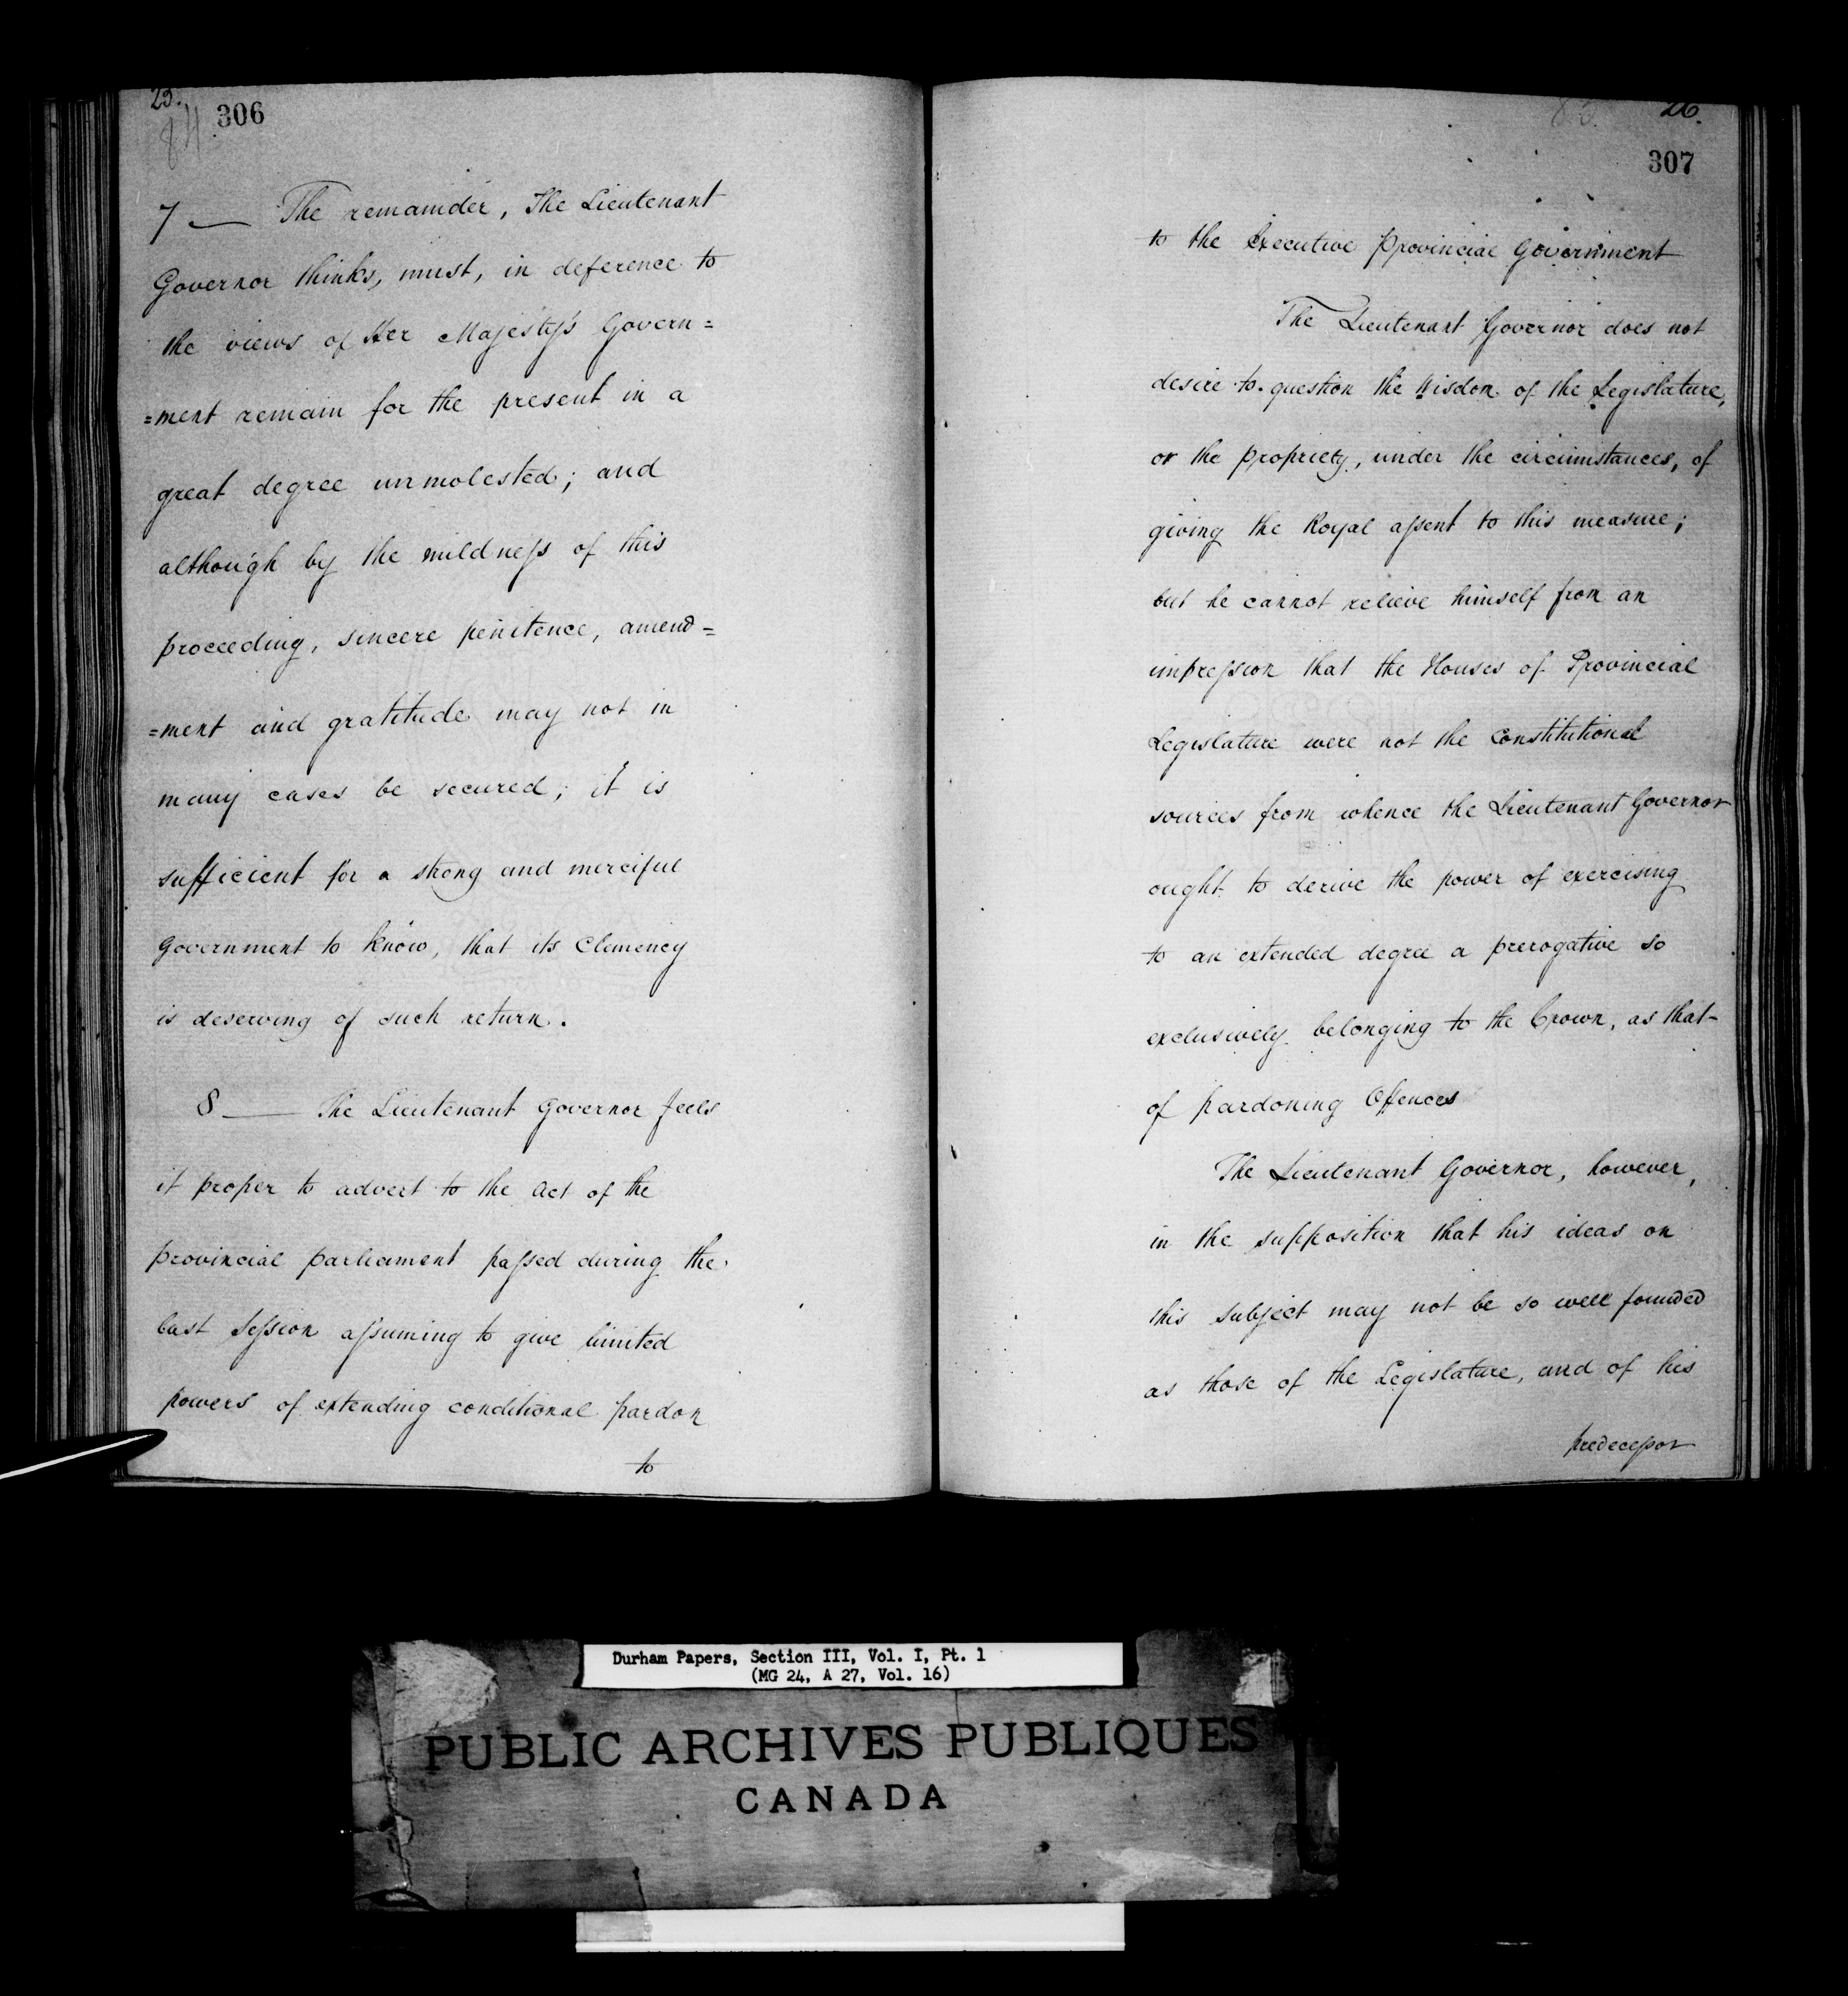 25.
84.
306
7 — The remainder, The Lieutenant
Governor thinks, must, in deference to
the views of Her Majesty's Govern=
=ment remain for the present in a
great degree unmolested; and
although by the mildneſs of this
proceeding, sincere penitence, amend=
=ment and gratitude may not in
many cases be secured; it is
sufficient for a strong and merciful
Government to know, that its Clemency
is deserving of such return.
8 — The Lieutenant Governor feels
it proper to advert to the Act of the
provincial parliament paſsed during the
last Seſsion aſsuming to give limited
powers of extending conditional pardon
to
26.
307
to the Executive Provincial Government
The Lieutenant Governor does not
desire to question the Wisdom of the Legislature,
or the propriety, under the circumstances, of
giving the Royal aſsent to this measure;
but he cannot relieve himself from an
impreſsion that the Houses of Provincial
Legislature were not the Constitutional
sources from whence the Lieutenant Governor
ought to derive the power of exercising
to an extended degree a prerogative so
exclusively belonging to the Crown, as that
of pardoning Offences
The Lieutenant Governor, however,
in the supposition that his ideas on
this subject may not be so well founded
as those of the Legislature, and of his
predeceſsor
Durham Papers, Section III, Vol. I, Pt. 1
(MG 24, A 27, Vol. 16)
PUBLIC ARCHIVES PUBLIQUES
CANADA